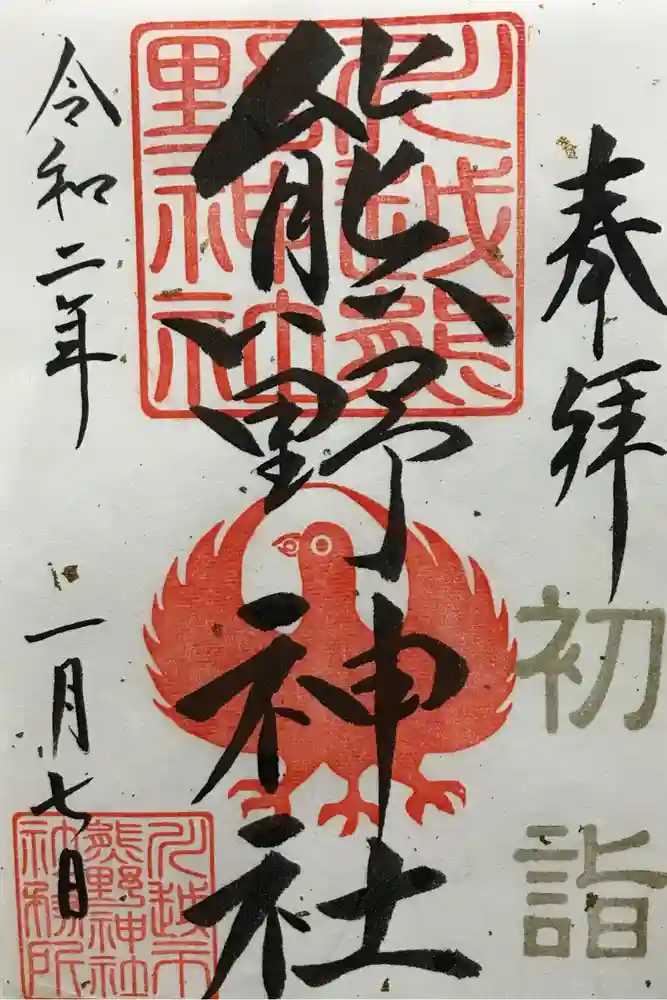 奉拝
初詣
熊野神社
川越熊
野神社
令和二年
一月七日
川越市
熊野神社
社務所